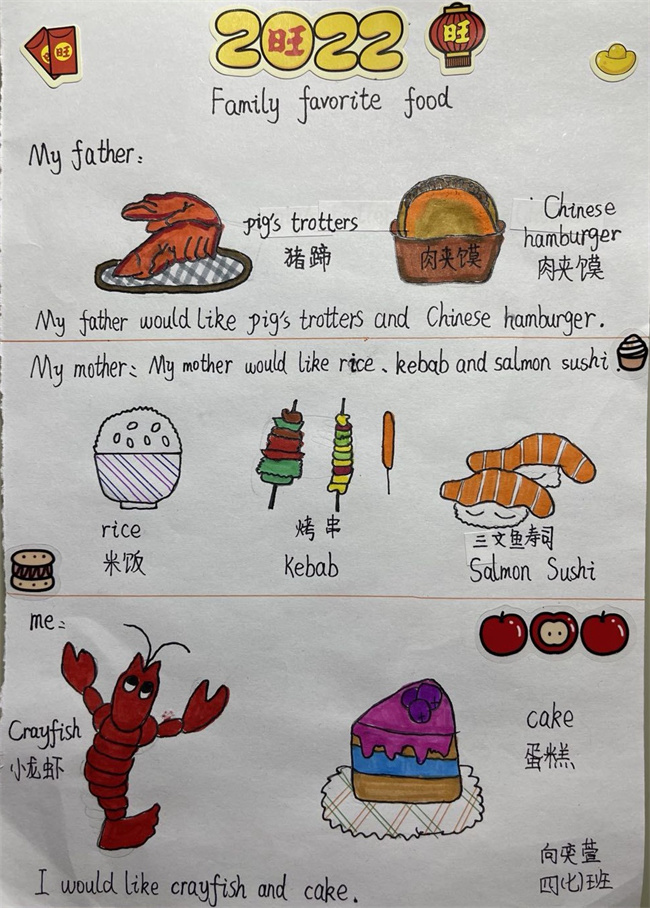 2022
旺
旺
旺
Family favorite food
My father:
pig's trotters
猪蹄
肉夹馍
Chinese
hamburger
肉夹馍
My father would like pig's trotters and Chinese hamburger.
My mother: My mother would like rice、kebab and salmon sushi.
rice
米饭
烤串
Kebab
三文鱼寿司
Salmon Sushi
me:
Crayfish
小龙虾
cake
蛋糕
I would like crayfish and cake.
向奕萱
四(七)班